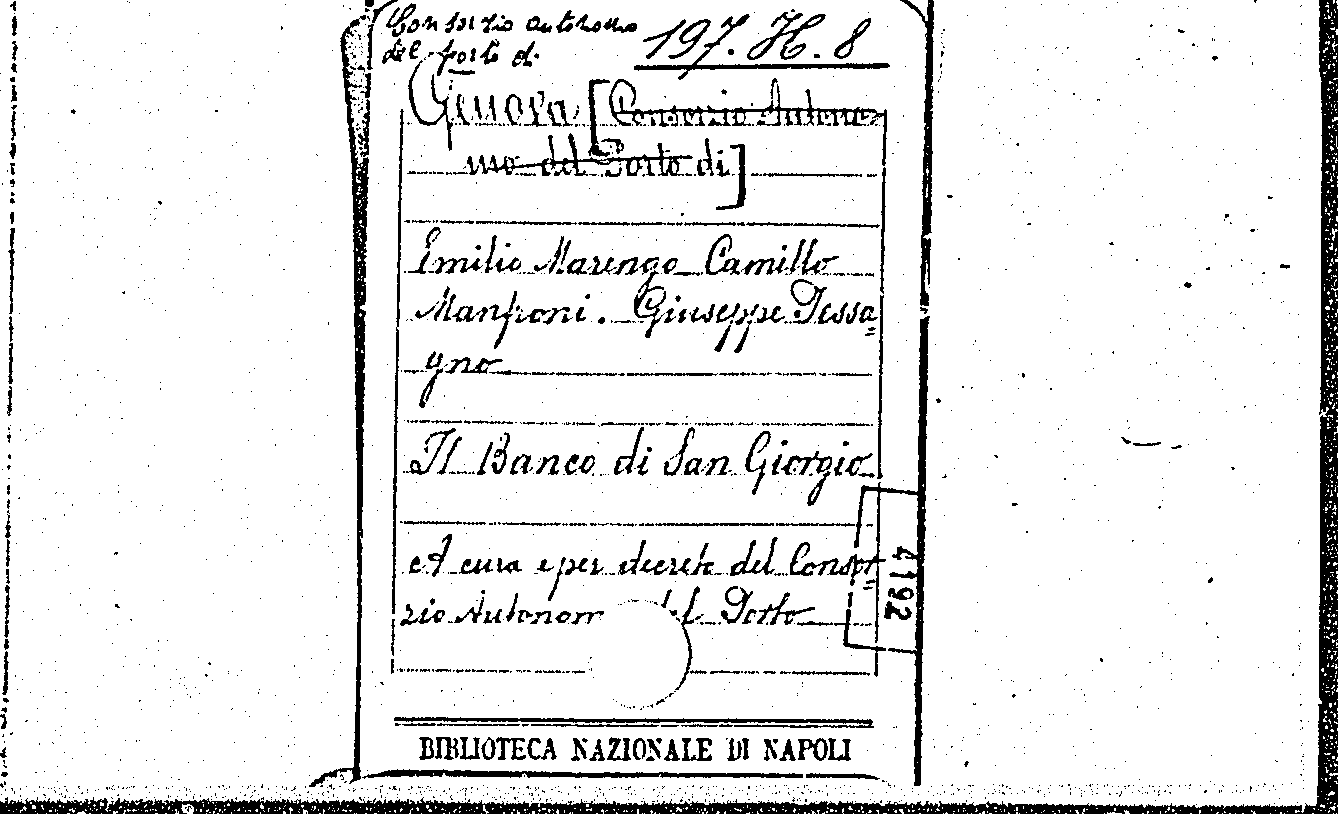 Consorzio autonomo
del porto di
197. H. 8
Genova [Consorzio Autono=
mo del Porto di]
Emilio Marengo Camillo
Manfroni. Giuseppe Pessa=
gno
Il Banco di San Giorgio
A cura e per decreto del Consor=
zio Autonom del Porto
4192
BIBLIOTECA NAZIONALE DI NAPOLI